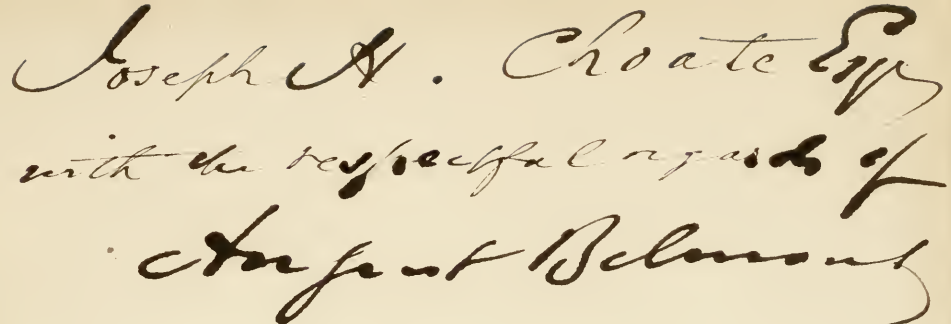 Joseph H. Choate Esq
with the respectful regards of
August Belmont